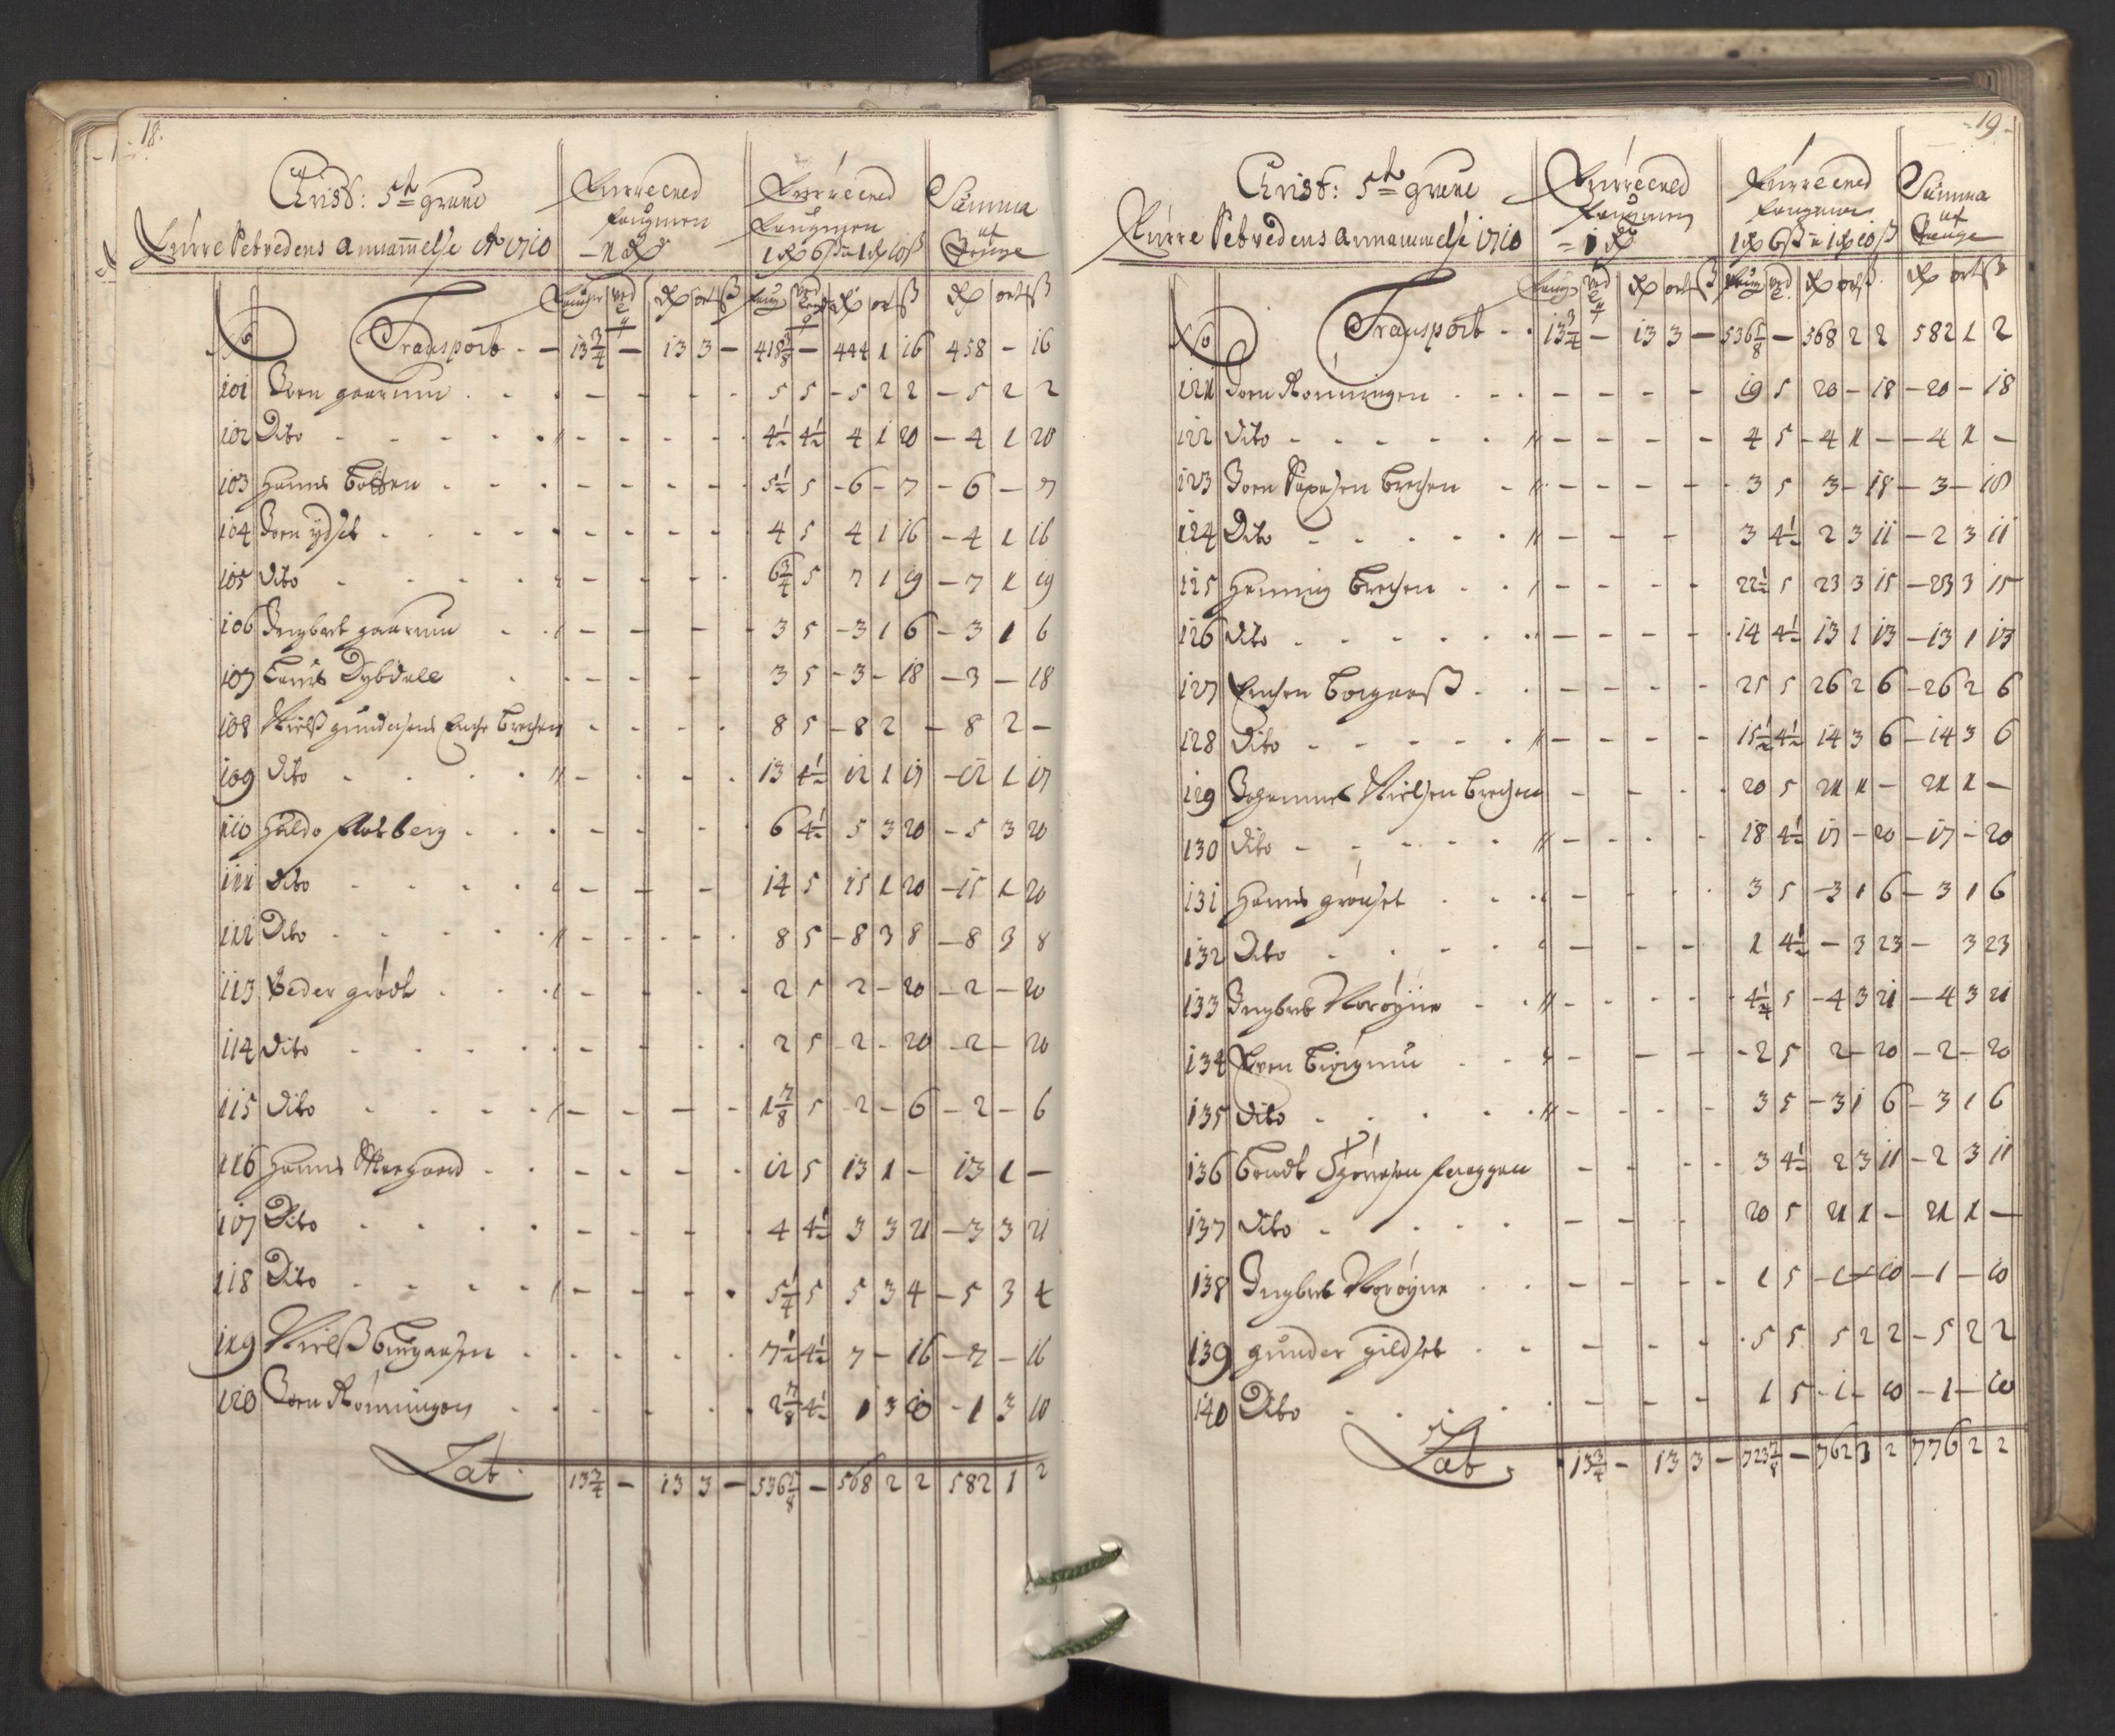 18.
Christ: 5te grube
Furre Setvedens Annammelse Ao 1710
Furreved faugnen
1 Rdr
Furreved Faugnen
1 Rd 6 ß a 1 Rd 10 ß
Summa af Penge
No Transport 13 3/4 - 13 3 - 418 3/8 - 444 1 16 458 - 16
101 Joen gaarum 5 5 5 2 2 5 2 2
102 Dito 4 1/2 4 1/2 4 1 20 4 1 20
103 Hanns 5 1/2 5 6 - 7 6 - 7
104 Joen ydset 4 5 4 1 16 4 1 16
105 Dito 6 3/4 5 7 1 19 7 1 19
106 Ingbret gaarum 3 5 3 1 6 3 1 6
107 Dybdale 3 5 3 - 18 3 - 18
108 Nielß gundersens Enche Brechen 8 5 8 2 8 2 -
109 Dito 13 4 1/2 12 1 17 12 1 17
110 Haldo Aasberg 6 4 1/2 5 3 20 5 3 20
111 Dito 14 5 15 1 20 15 1 20
112 Dito 8 5 8 3 8 8 3 8
113 Peder grødt 2 5 2 - 20 2 - 20
114 Dito 2 5 2 - 20 2 - 20
115 Dito 1 7/8 5 2 - 6 2 - 6
116 Hanns Moegaard 12 5 13 1 - 13 1 -
117 Dito 4 4 1/2 3 3 21 3 3 21
118 Dito 5 1/4 5 5 3 4 5 3 4
119 Nielß 7 1/2 4 1/2 7 - 16 7 - 16
120 Joen Rønningen 2 7/8 4 1/2 1 3 10 1 3 10
Lat 13 3/4 - 13 3 - 536 5/8 - 568 2 2 582 1 2
19
Christ: 5te grube
Furre Setvedens Annammelse 1710
Furreved faugnen
1 Rdr
Furreved faugnen
1 Rd 6 ß a 1 Rd 10 ß
Summa af Penge
No Transport 13 3/4 - 13 3 - 536 5/8 - 568 2 2 582 1 2
121 Joen Rønningen 19 5 20 - 18 20 - 18
122 Dito 4 5 4 1 - 4 1 -
123 Joen Brechen 3 5 3 - 18 3 - 18
124 Dito 3 4 1/2 2 3 11 2 3 11
125 Henning Brechen 22 1/2 5 23 3 15 23 3 15
126 Dito 14 4 1/2 13 1 13 13 1 13
127 Enchen Borgaaß 25 5 26 2 6 26 2 6
128 Dito 15 1/2 4 1/2 14 3 6 14 3 6
129 Johannes Nielsen Brechen 20 5 21 1 - 21 1 -
130 Dito 18 4 1/2 17 - 20 17 - 20
131 Hanns grønset 3 5 3 1 6 3 1 6
132 Dito 1 4 1/2 - 3 23 - 3 23
133 Ingbret Norøyne 4 1/4 5 4 3 21 4 3 21
134 Even 2 5 2 - 20 2 - 20
135 Dito 3 5 3 1 6 3 1 6
136 Berndt 3 4 1/2 2 3 11 2 3 11
137 Dito 20 5 21 1 - 21 1 -
138 Ingbret Norøyne 1 5 1 - 10 1 - 10
139 gunder gildset 5 5 5 2 2 5 2 2
140 Dito 1 5 1 - 10 1 - 10
Lat 13 3/4 - 13 3 - 723 7/8 - 762 3 2 776 2 2